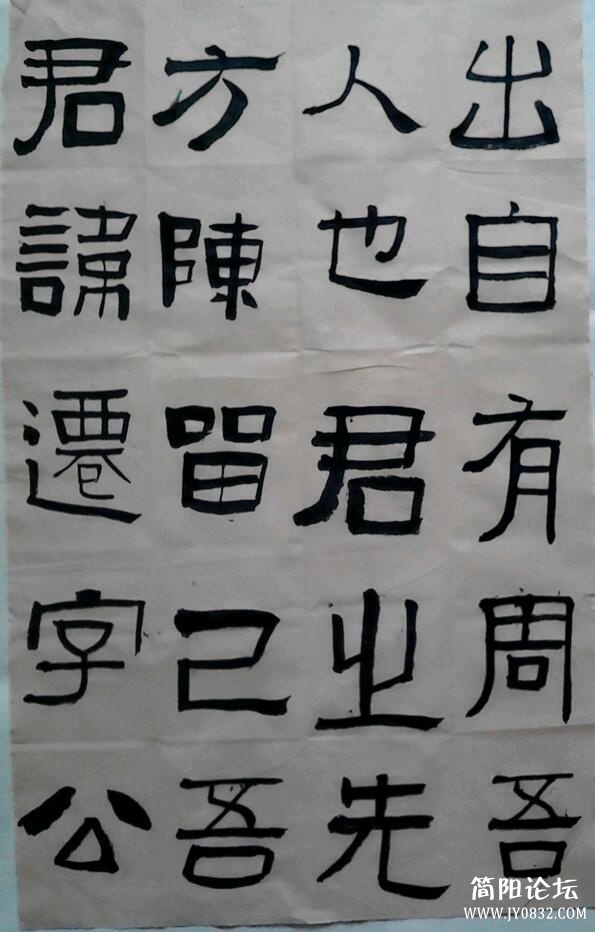 君諱遷字公
方陳留己吾
人也君之先
出自有周吾
简阳论坛
WWW.JY0832.COM